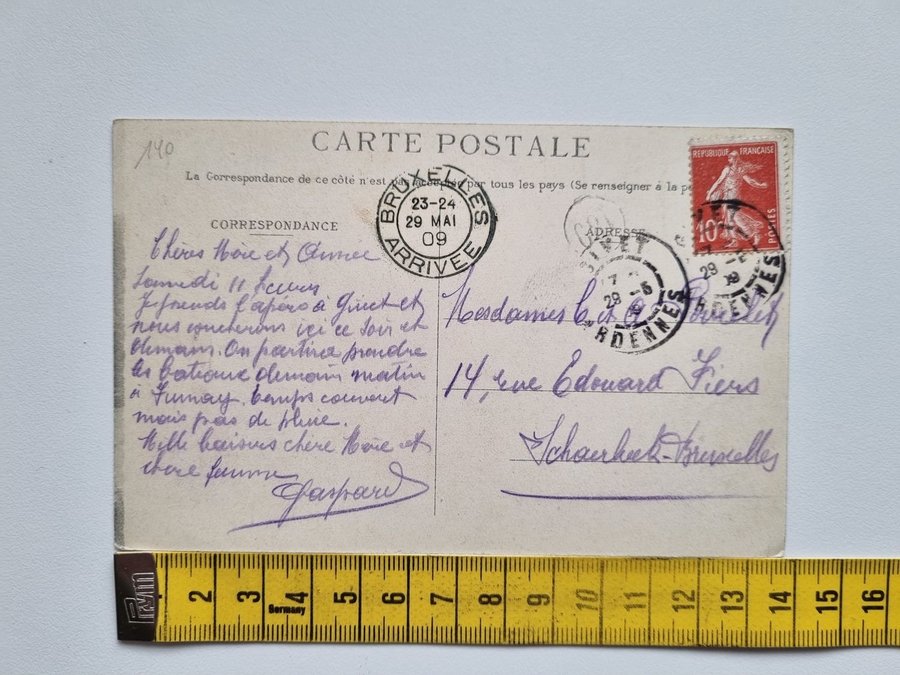 140
CARTE POSTALE
La Correspondance de ce côté n'est pas acceptée par tous les pays (Se renseigner à la
CORRESPONDANCE
ADRESSE
REPUBLIQUE FRANÇAISE
10c
POSTES
BRUXELLES
23-24
29 MAI
09
ARRIVEE
GIVET
29 -5
ARDENNES
GIVET
29
ARDENNES
Chères Mère et
Samedi 11 heures
Je prends l'apéro à Givet et
nous coucherons ici ce soir et
demain. On partira prendre
les bateaux demain matin
à Fumay. temps couvert
mais pas de pluie.
Mille baisers chère Mère et
chère femme
Gaspard
Mesdames C et
14, rue Edouard Fiers
Schaerbeek-Bruxelles
PRYM
Germany
2 3 4 5 6 7 8 9 10 11 12 13 14 15 16